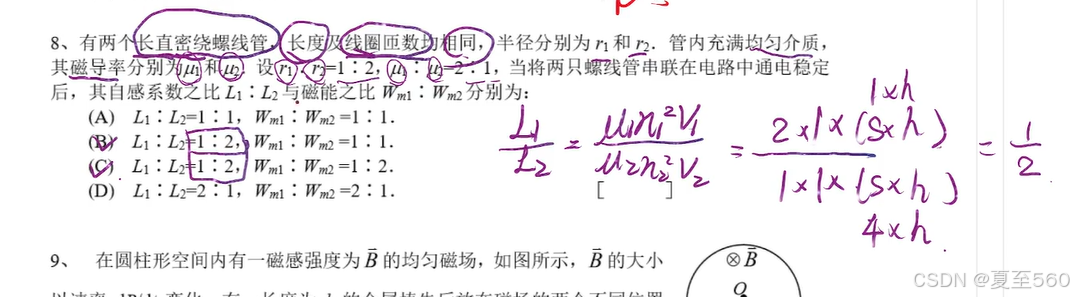 8、有两个长直密绕螺线管，长度及线圈匝数均相同，半径分别为 r₁ 和 r₂．管内充满均匀介质，
其磁导率分别为 μ₁ 和 μ₂．设 r₁∶r₂=1∶2，μ₁∶μ₂=2∶1，当将两只螺线管串联在电路中通电稳定
后，其自感系数之比 L₁∶L₂ 与磁能之比 Wm1∶Wm2 分别为：
(A) L₁∶L₂=1∶1，Wm1∶Wm2 =1∶1.
(B) L₁∶L₂=1∶2，Wm1∶Wm2 =1∶1.
(C) L₁∶L₂=1∶2，Wm1∶Wm2 =1∶2.
(D) L₁∶L₂=2∶1，Wm1∶Wm2 =2∶1.
[ ]
1×h
L₁/L₂ = μ₁n₁²V₁/μ₂n₂²V₂ = 2×1×(S×h)/1×1×(S×h) = 1/2
4×h
9、 在圆柱形空间内有一磁感强度为 B⃗ 的均匀磁场，如图所示，B⃗ 的大小
⊗ B⃗
CSDN @夏至560